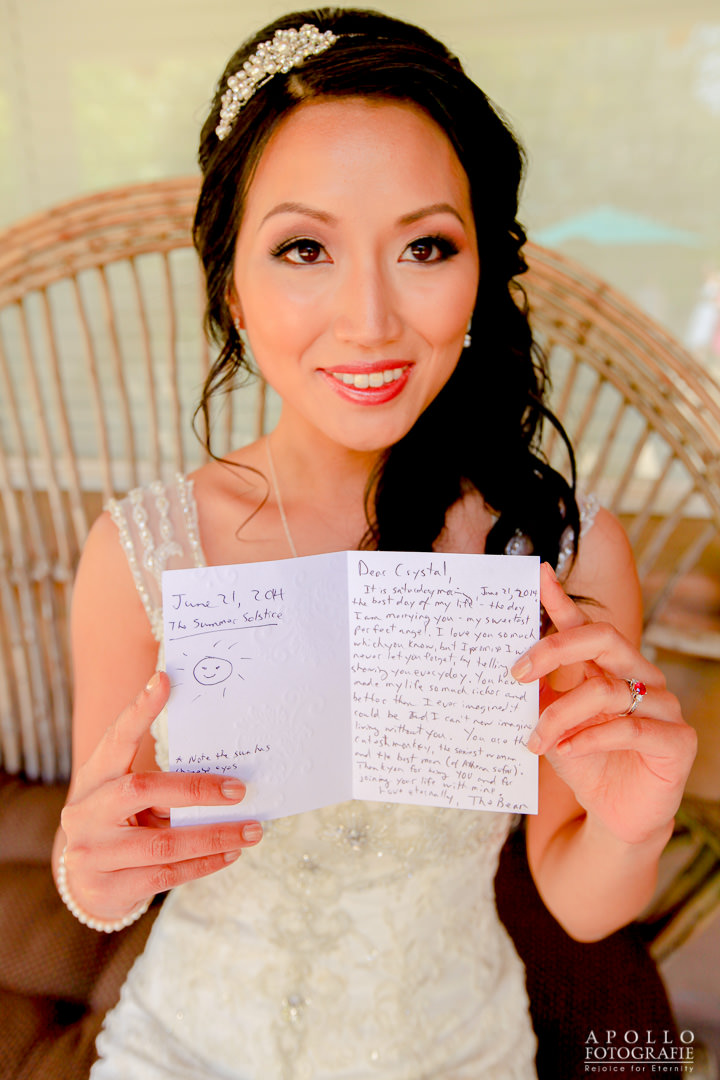 June 21, 2014
The Summer Solstice
* Note the sun has
eyes
Dear Crystal,
It is saturday morning, June 21, 2014,
the best day of my life - the day
I am marrying you - my sweetest
perfect angel. I love you so much
which you know, but I promise I w
never let you forget, by telling
showing you everyday. You have
made my life so much richer and
better than I ever imagined it
could be and I can't new imagine
living without you. You are the
cutest monkey, the sexiest woman
and the best mom (of
Thank you for being YOU and for
joining your life with mine.
Love eternally, The Bear
APOLLO
FOTOGRAFIE
Rejoice for Eternity